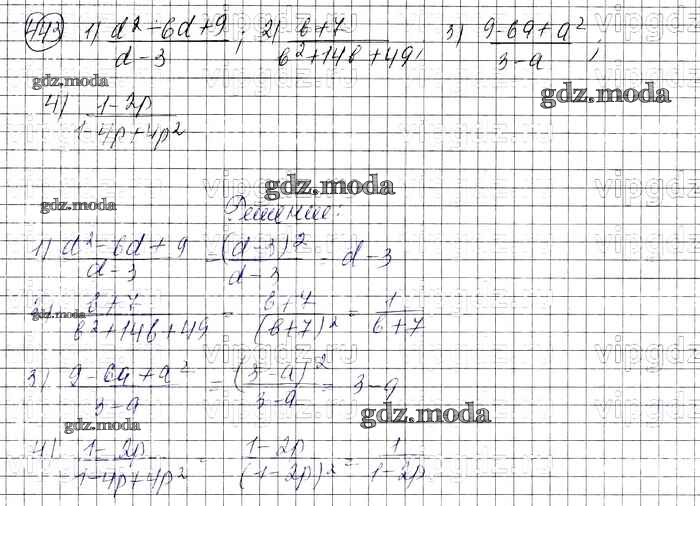 443 1) (d² - 6d + 9)/(d - 3); 2) (b + 7)/(b² + 14b + 49), 3) (9 - 6a + a²)/(3 - a);
gdz.moda gdz.moda
4) (1 - 2p)/(1 - 4p + 4p²)
vipgdz.ru
gdz.moda gdz.moda
Решение:
1) (d² - 6d + 9)/(d - 3) = (d - 3)²/(d - 3) = d - 3
gdz.moda (b + 7)/(b² + 14b + 49) = (b + 7)/(b + 7)² = 1/(b + 7)
3) (9 - 6a + a²)/(3 - a) = (3 - a)²/(3 - a) = 3 - a
gdz.moda gdz.moda
4) (1 - 2p)/(1 - 4p + 4p²) = (1 - 2p)/(1 - 2p)² = 1/(1 - 2p)